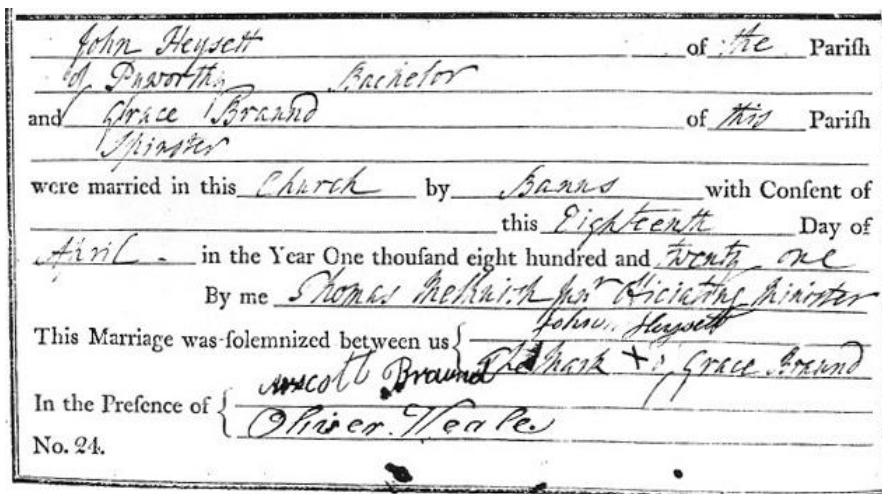 John Heysett of the Parish
of Pyworthy Bachelor
and Grace Braund of this Parish
Spinster
were married in this Church by Banns with Consent of
this Eighteenth Day of
April in the Year One thousand eight hundred and twenty one
By me Thomas Melhuish Junr Oficiating Minister
John Heysett
This Marriage was solemnized between us
The Mark X of Grace Braund
Arscott Braund
In the Presence of
Oliver Heale
No. 24.